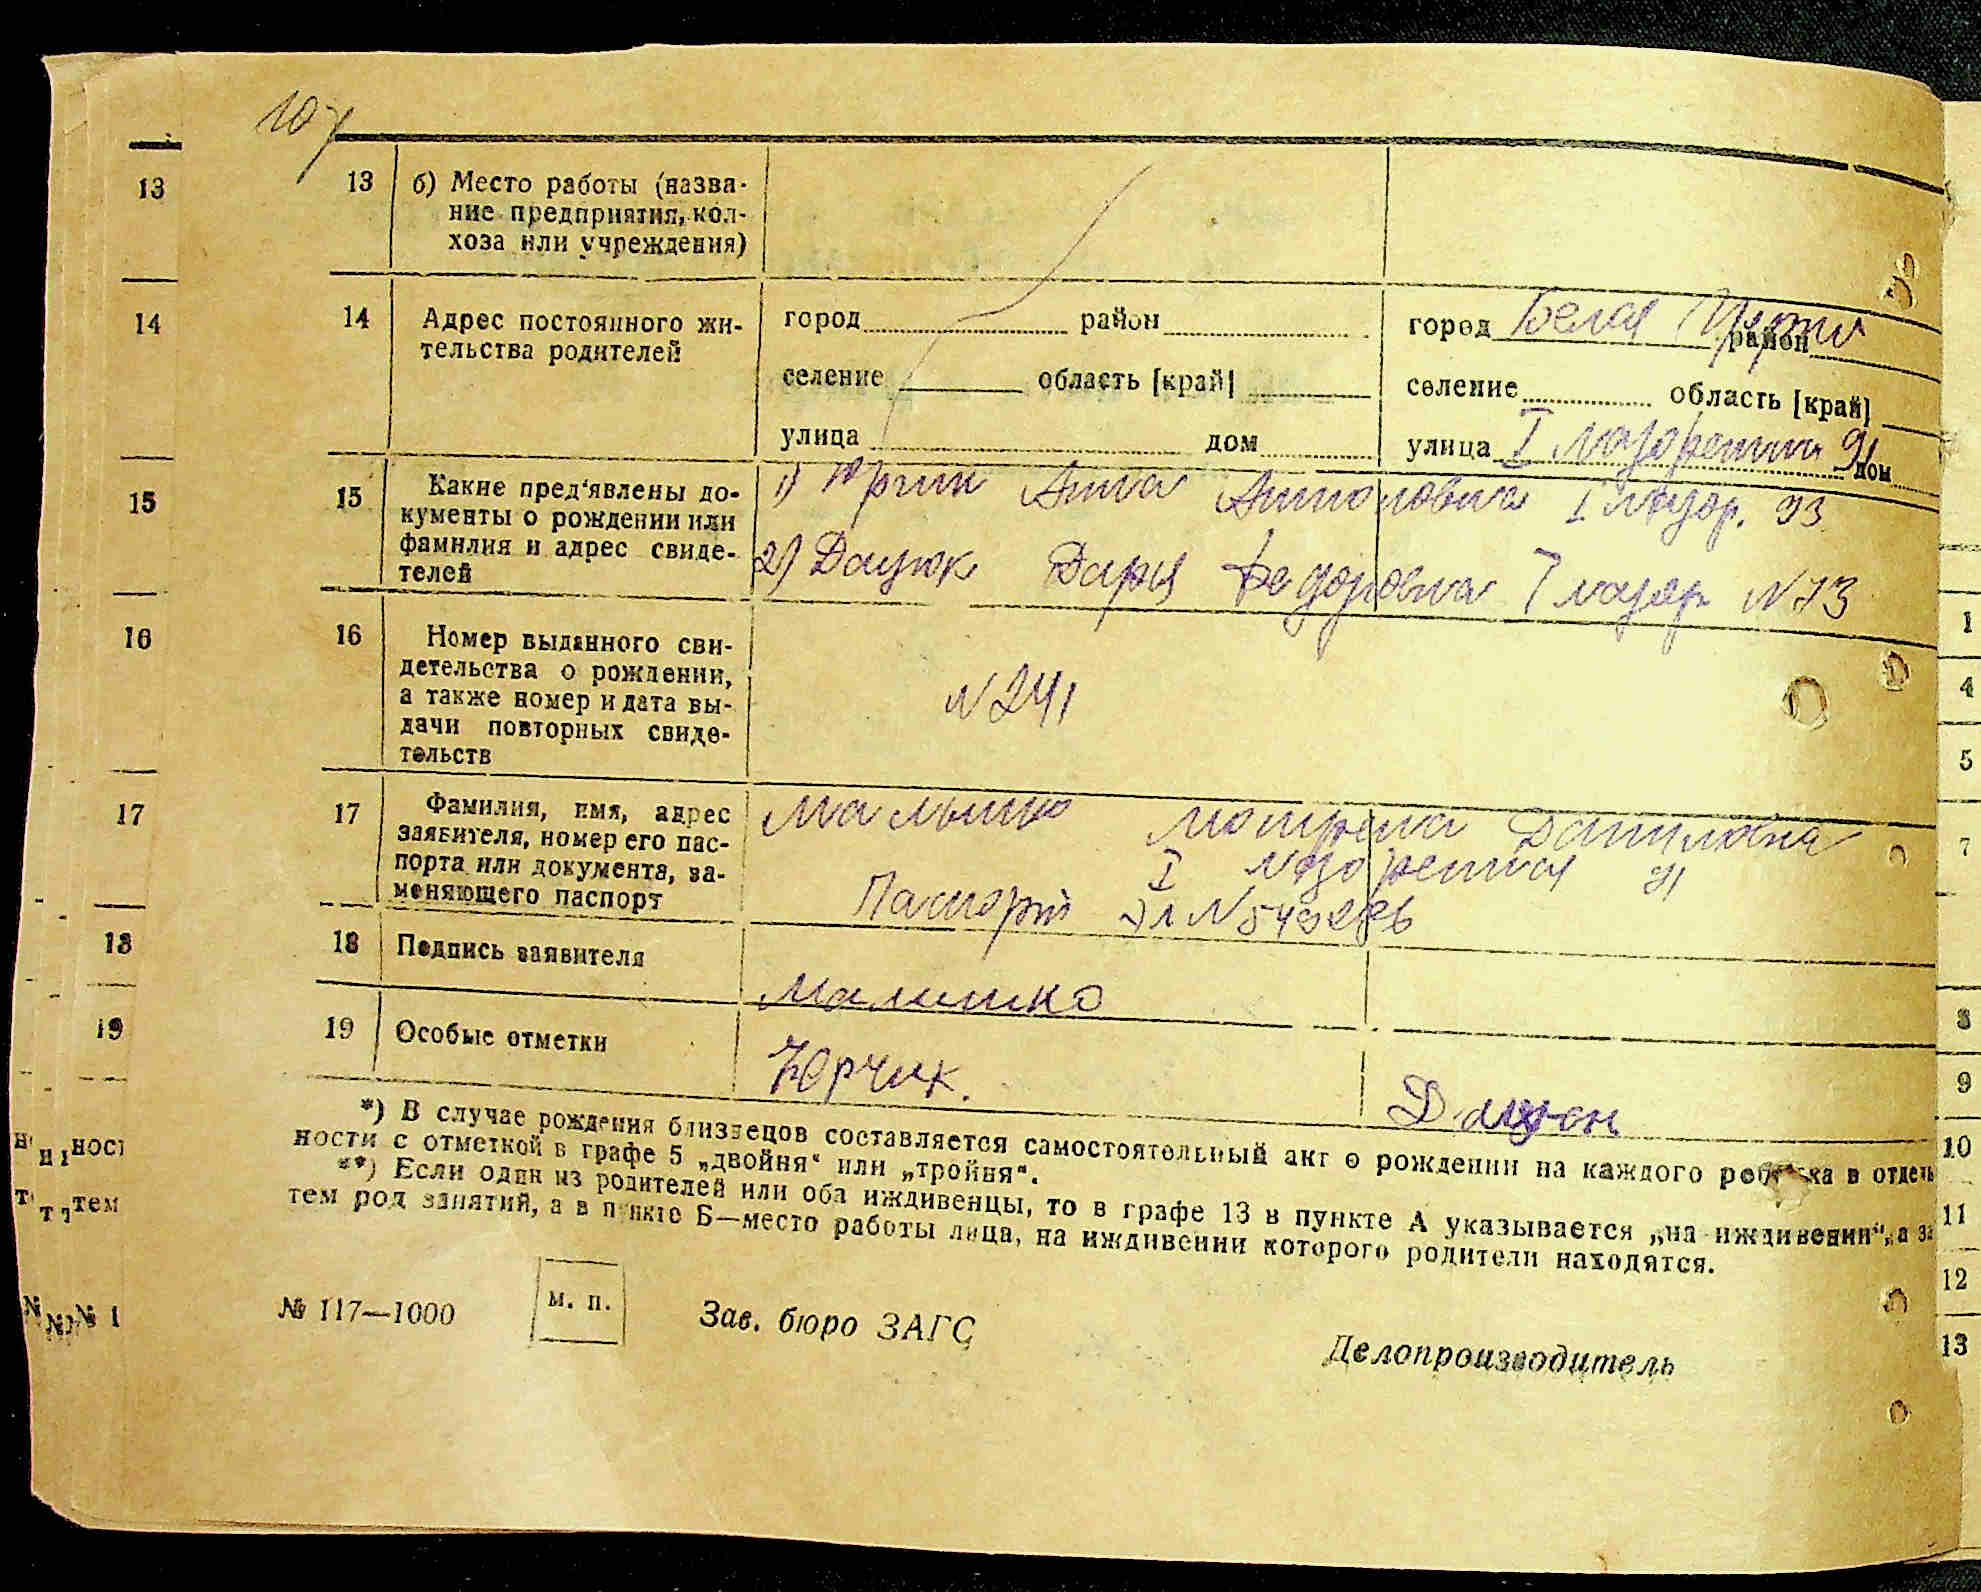 107
13 б) Место работы (назва-
ние предприятия, кол-
хоза или учреждения)
14 Адрес постоянного жи-
тельства родителей
город район
селение область [край]
улица дом
город Белая Церковь район
селение область [край]
улица I 91 дом
15 Какие пред'явлены до-
кументы о рождении или
фамилия и адрес свиде-
телей
1) Юрчик Анна Антоновна I лазор. 93
2) Дацюк Дарья Федоровна I лазор № 73
16 Номер выданного сви-
детельства о рождении,
а также номер и дата вы-
дачи повторных свиде-
тельств
№ 241
17 Фамилия, имя, адрес
заявителя, номер его пас-
порта или документа, за-
меняющего паспорт
Малышко Мотрена Даниловна
I 91
Паспорт №
18 Подпись заявителя
Малишко
19 Особые отметки
Юрчик.
*) В случае рождения близнецов составляется самостоятельный акт о рождении на каждого ребенка в отдель
ности с отметкой в графе 5 „двойня“ или „тройня“.
**) Если один из родителей или оба иждивенцы, то в графе 13 в пункте А указывается „на иждивении“, а за
тем род занятий, а в пункте Б—место работы лица, на иждивении которого родители находятся.
№ 117—1000
м. п.
Зав. бюро ЗАГС
Делопроизводитель
13
14
15
16
17
18
19
ност
тем
№ 1
1
4
5
7
8
9
10
11
12
13